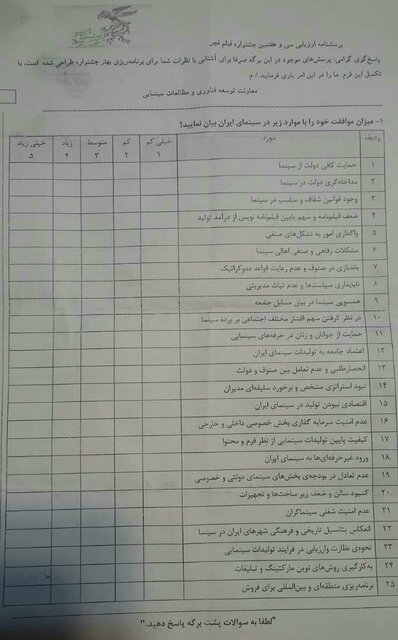 پرسشنامه ارزیابی سی و هفتمین جشنواره فیلم فجر
پاسخ‌گوی گرامی، پرسش‌های موجود در این برگه صرفا برای آشنایی با نظرات شما برای برنامه‌ریزی بهتر جشنواره طراحی شده است. با
تکمیل این فرم ما را در این امر یاری فرمایید./ م
معاونت توسعه فناوری و مطالعات سینمایی
۱- میزان موافقت خود را با موارد زیر در سینمای ایران بیان نمایید؟
ردیف مورد خیلی کم ۱ کم ۲ متوسط ۳ زیاد ۴ خیلی زیاد ۵
۱ حمایت کافی دولت از سینما
۲ مداخله‌گری دولت در سینما
۳ وجود قوانین شفاف و مناسب در سینما
۴ ضعف فیلمنامه و سهم پایین فیلمنامه نویس از درآمد تولید
۵ واگذاری امور به تشکل‌های صنفی
۶ مشکلات رفاهی و صنفی اهالی سینما
۷ باندبازی در صنوف و عدم رعایت قواعد دموکراتیک
۸ ناپایداری سیاست‌ها و عدم ثبات مدیریتی
۹ همسویی سینما در بیان مسایل جامعه
۱۰ در نظر گرفتن سهم اقشار مختلف اجتماعی بر پرده سینما
۱۱ حمایت از جوانان و زنان در حرفه‌های سینمایی
۱۲ اعتماد جامعه به تولیدات سینمای ایران
۱۳ انحصارطلبی و عدم تعامل بین صنوف و دولت
۱۴ نبود استراتژی مشخص و برخورد سلیقه‌ای مدیران
۱۵ اقتصادی نبودن تولید در سینمای ایران
۱۶ عدم امنیت سرمایه گذاری بخش خصوصی داخلی و خارجی
۱۷ کیفیت پایین تولیدات سینمایی از نظر فرم و محتوا
۱۸ ورود غیرحرفه‌ای‌ها به سینمای ایران
۱۹ عدم تعادل در بودجه‌ی بخش‌های سینمای دولتی و خصوصی
۲۰ کمبود سالن و ضعف زیر ساخت‌ها و تجهیزات
۲۱ عدم امنیت شغلی سینماگران
۲۲ انعکاس پتانسیل تاریخی و فرهنگی شهرهای ایران در سینما
۲۳ نحوه‌ی نظارت وارزیابی در فرایند تولیدات سینمایی
۲۴ به‌کارگیری روش‌های نوین مارکتینگ و تبلیغات
۲۵ برنامه‌ریزی منطقه‌ای و بین‌المللی برای فروش
"لطفا به سوالات پشت برگه پاسخ دهید."